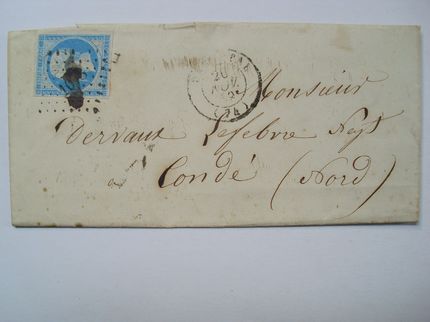 20
NOV.
Monsieur
Dervaux Lefebvre Negt
a Condé (Nord)